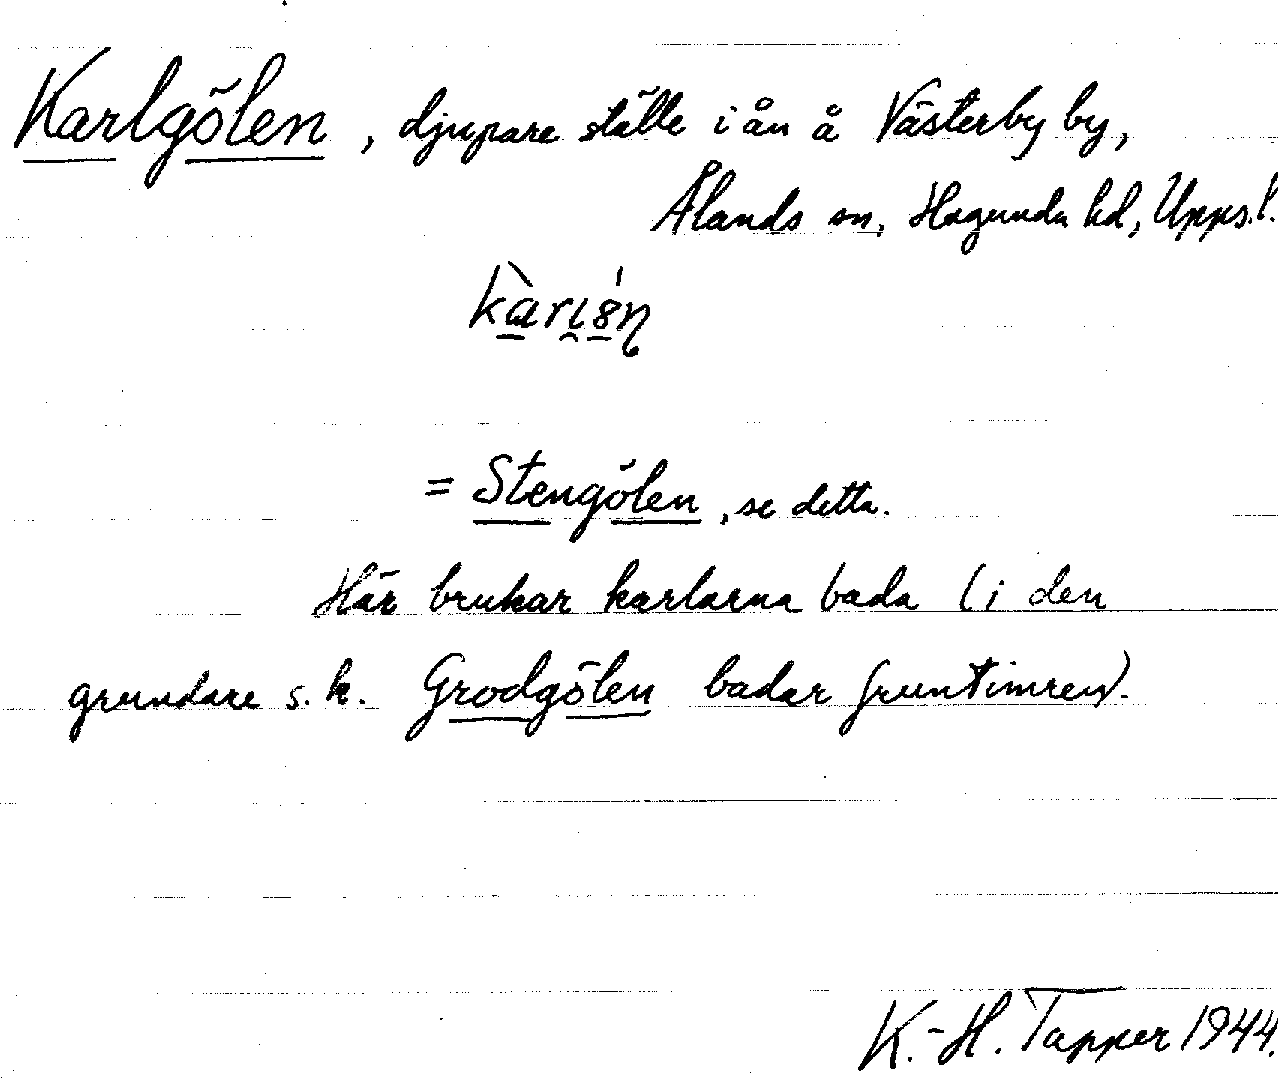 Karlgölen, djupare ställe i ån å Västerby by,
Ålands sn, Hagunda hd, Upps.l.
= Stengölen, se detta.
Här brukar karlarna bada (i den
grundare s.k. Grodgölen badar fruntimren).
K.-H. Tapper 1944.